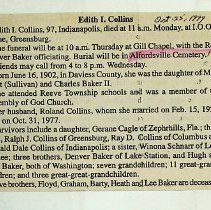 Edith I. Collins
Oct-25, 1999
dith I. Collins, 97, Indianapolis, died at 11 a.m. Monday, at I.O.O
me, Greensburg.
he funeral will be at 10 a.m. Thursday at Gill Chapel, with the R
ver Baker officiating. Burial will be in Alfordsville Cemetery.
iends may call from 4 to 8 p.m. Wednesday.
orn June 16, 1902, in Daviess County, she was the daughter of M
t (Sullivan) and Charles Baker II.
e attended Reeve Township schools and was a member of th
sembly of God Church.
er husband, Roland Collins, whom she married on Feb. 15, 19
on Oct. 31, 1977.
urvivors include a daughter, Gerane Cagle of Zephyrhills, Fla.; th
s, Ralph J. Collins of Greensburg, Ray D. Collins of Columbus a
ald Dale Collins of Indianapolis; a sister, Winona Schnarr of L
ee; three brothers, Denver Baker of Lake-Station, and Hugh a
Baker, both of Washington; seven grandchildren; 11 great-gran
dren; and three great-great-grandchildren.
ve brothers, Floyd, Graham, Barty, Heath and Lee Baker are deceas